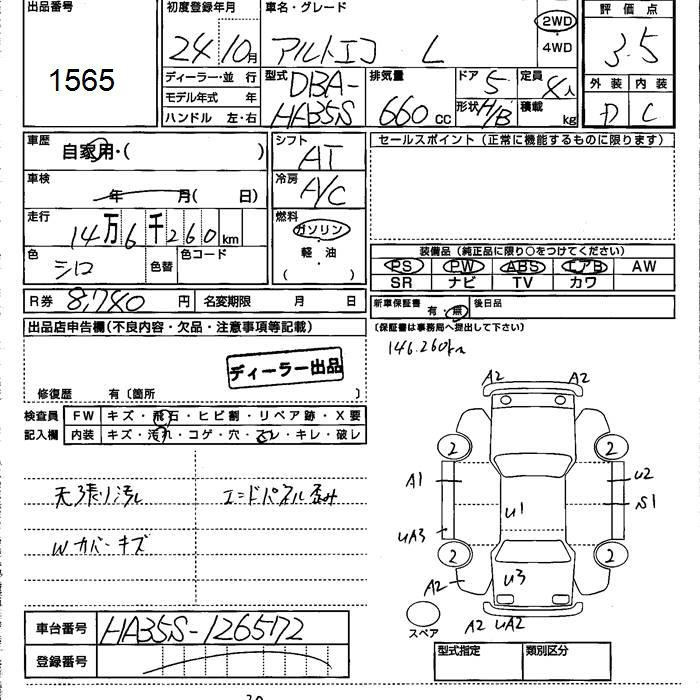 出品番号
1565
初度登録年月
24年10月
車名・グレード
アルトエコ L
2WD
・
4WD
評価点
3.5
外装 内装
D C
ディーラー・並行
モデル年式 年
ハンドル 左・右
型式
DBA-
HA35S
排気量
660 cc
ドア 5
形状 H/B
定員 4人
積載 kg
車歴
自家用・( )
車検
年 月( 日)
走行
14万6千260km
色
シロ
色替
色コード
シフト
AT
冷房
A/C
燃料
ガソリン
・
軽・油
( )
セールスポイント(正常に機能するものに限ります)
装備品(純正品に限り○をつけてください)
PS PW ABS エアB AW
SR ナビ TV カワ
R券 8,740円
名変期限 月 日
新車保証書 有・無
後日品
(保証書は事務局へ提出して下さい)
146.260km
出品店申告欄(不良内容・欠品・注意事項等記載)
ディーラー出品
修復歴 有〔箇所 〕
検査員
記入欄
FW キズ・飛石・ヒビ割・リペア跡・X要
内装 キズ・汚れ・コゲ・穴・スレ・キレ・破レ
天張り汚れ
エンドパネル歪み
Wカバーキズ
A2 A2
2 2
A1 U2
U1 S1
UA3
2 2
A2 U3
A2 UA2
スペア
車台番号 HA35S-126572
登録番号
型式指定 類別区分